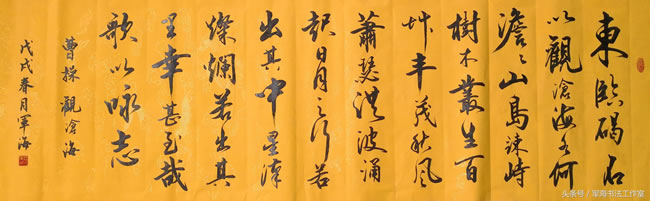 東臨碣石
以觀滄海水何
澹々山島竦峙
樹木叢生百
艸丰茂秋風
蕭瑟洪波涌
起日月之行若
出其中星漢
燦爛若出其
里幸甚至哉
歌以咏志
曹操觀滄海
戊戌春月軍海
头条号 / 军海书法工作室